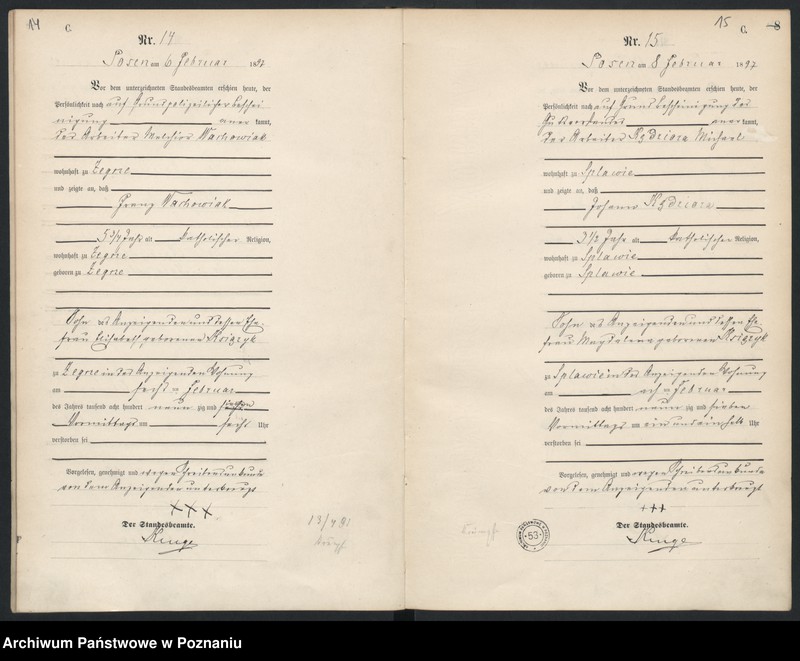 14
C.
Nr. 14
Posen am 6 Februar 1897
Vor dem unterzeichneten Standesbeamten erschien heute, der
Persönlichkeit nach auf Grund polizeilicher beschei
nigung anerkannt,
der Arbeiter Melchior Wachowiak
wohnhaft zu Zegrze
und zeigte an, daß
Franz Wachowiak
5 3/4 Jahr alt katholischer Religion,
wohnhaft zu Zegrze
geboren zu Zegrze
Sohn des Anzeigenden und dessen Ehe
frau Elisabeth geborenen Księżyk
zu Zegrze in des Anzeigenden Wohnung
am sechsten Februar
des Jahres tausend acht hundert neunzig und sieben
Vormittags um sechs Uhr
verstorben sei
Vorgelesen, genehmigt und wegen Schreibensunkunde
von dem Anzeigenden unterkreuzt
+++
Der Standesbeamte.
Kluge
15
C.
8
Nr. 15
Posen am 8 Februar 1897
Vor dem unterzeichneten Standesbeamten erschien heute, der
Persönlichkeit nach auf Grund bescheinigung des
Gutsvorstandes anerkannt,
der Arbeiter Michael
wohnhaft zu Splawie
und zeigte an, daß
Johann
3 1/2 Jahr alt katholischer Religion,
wohnhaft zu Splawie
geboren zu Splawie
Sohn des Anzeigenden und dessen Ehe
frau Magdalena geborenen Księżyk
zu Splawie in des Anzeigenden Wohnung
am achten Februar
des Jahres tausend acht hundert neunzig und sieben
Vormittags um ein und ein halb Uhr
verstorben sei
Vorgelesen, genehmigt und wegen Schreibensunkunde
von dem Anzeigenden unterkreuzt
+++
Der Standesbeamte.
Kluge
53
Archiwum Państwowe w Poznaniu